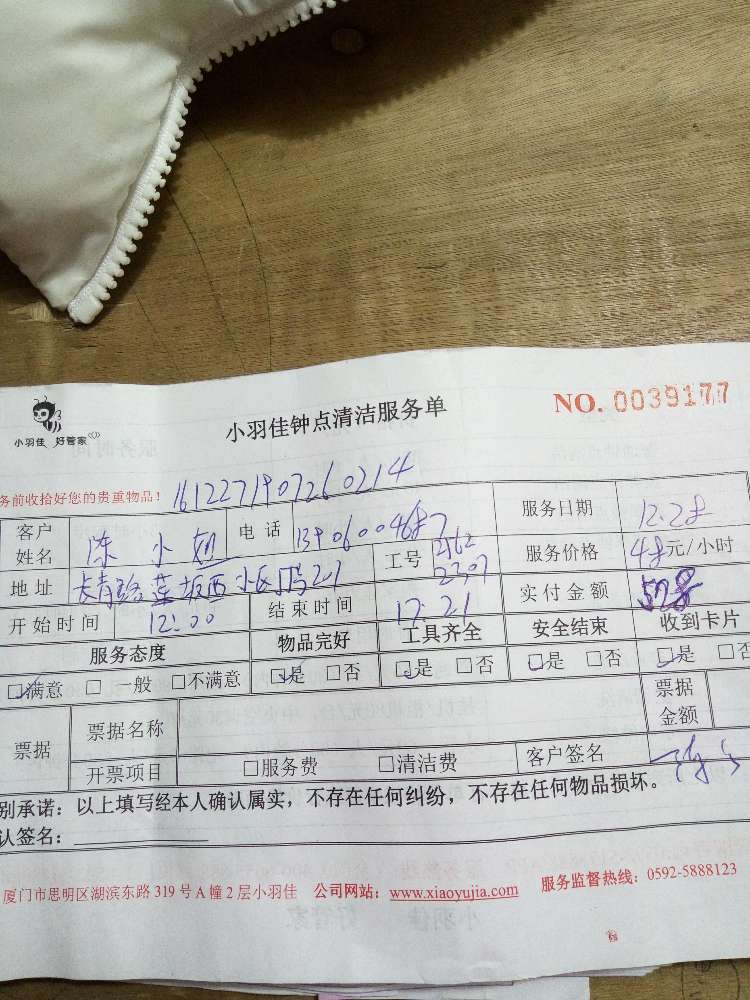 小羽佳 好管家
小羽佳钟点清洁服务单
NO. 0039177
务前收拾好您的贵重物品！
1612271907260214
客户姓名 陈小姐 电话 13906004687 工号 2562 2307 服务日期 12.28
地址 长青路莲坂西小区 21 服务价格 48元/小时
开始时间 12:00 结束时间 17:21 实付金额 528
服务态度 物品完好 工具齐全 安全结束 收到卡片
□满意 □一般 □不满意 □是 □否 □是 □否 □是 □否 □是 □否
票据 票据名称 票据金额
开票项目 □服务费 □清洁费 客户签名
别承诺：以上填写经本人确认属实，不存在任何纠纷，不存在任何物品损坏。
认签名：
厦门市思明区湖滨东路 319 号 A 幢 2 层小羽佳 公司网站：www.xiaoyujia.com 服务监督热线：0592-5888123